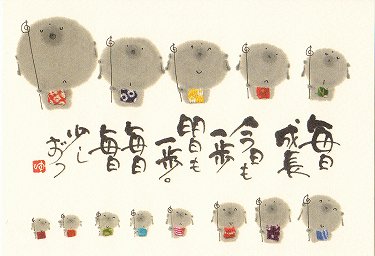 毎日
成長
今日も
一歩
明日も
一歩。
毎日
毎日
少し
ずつ